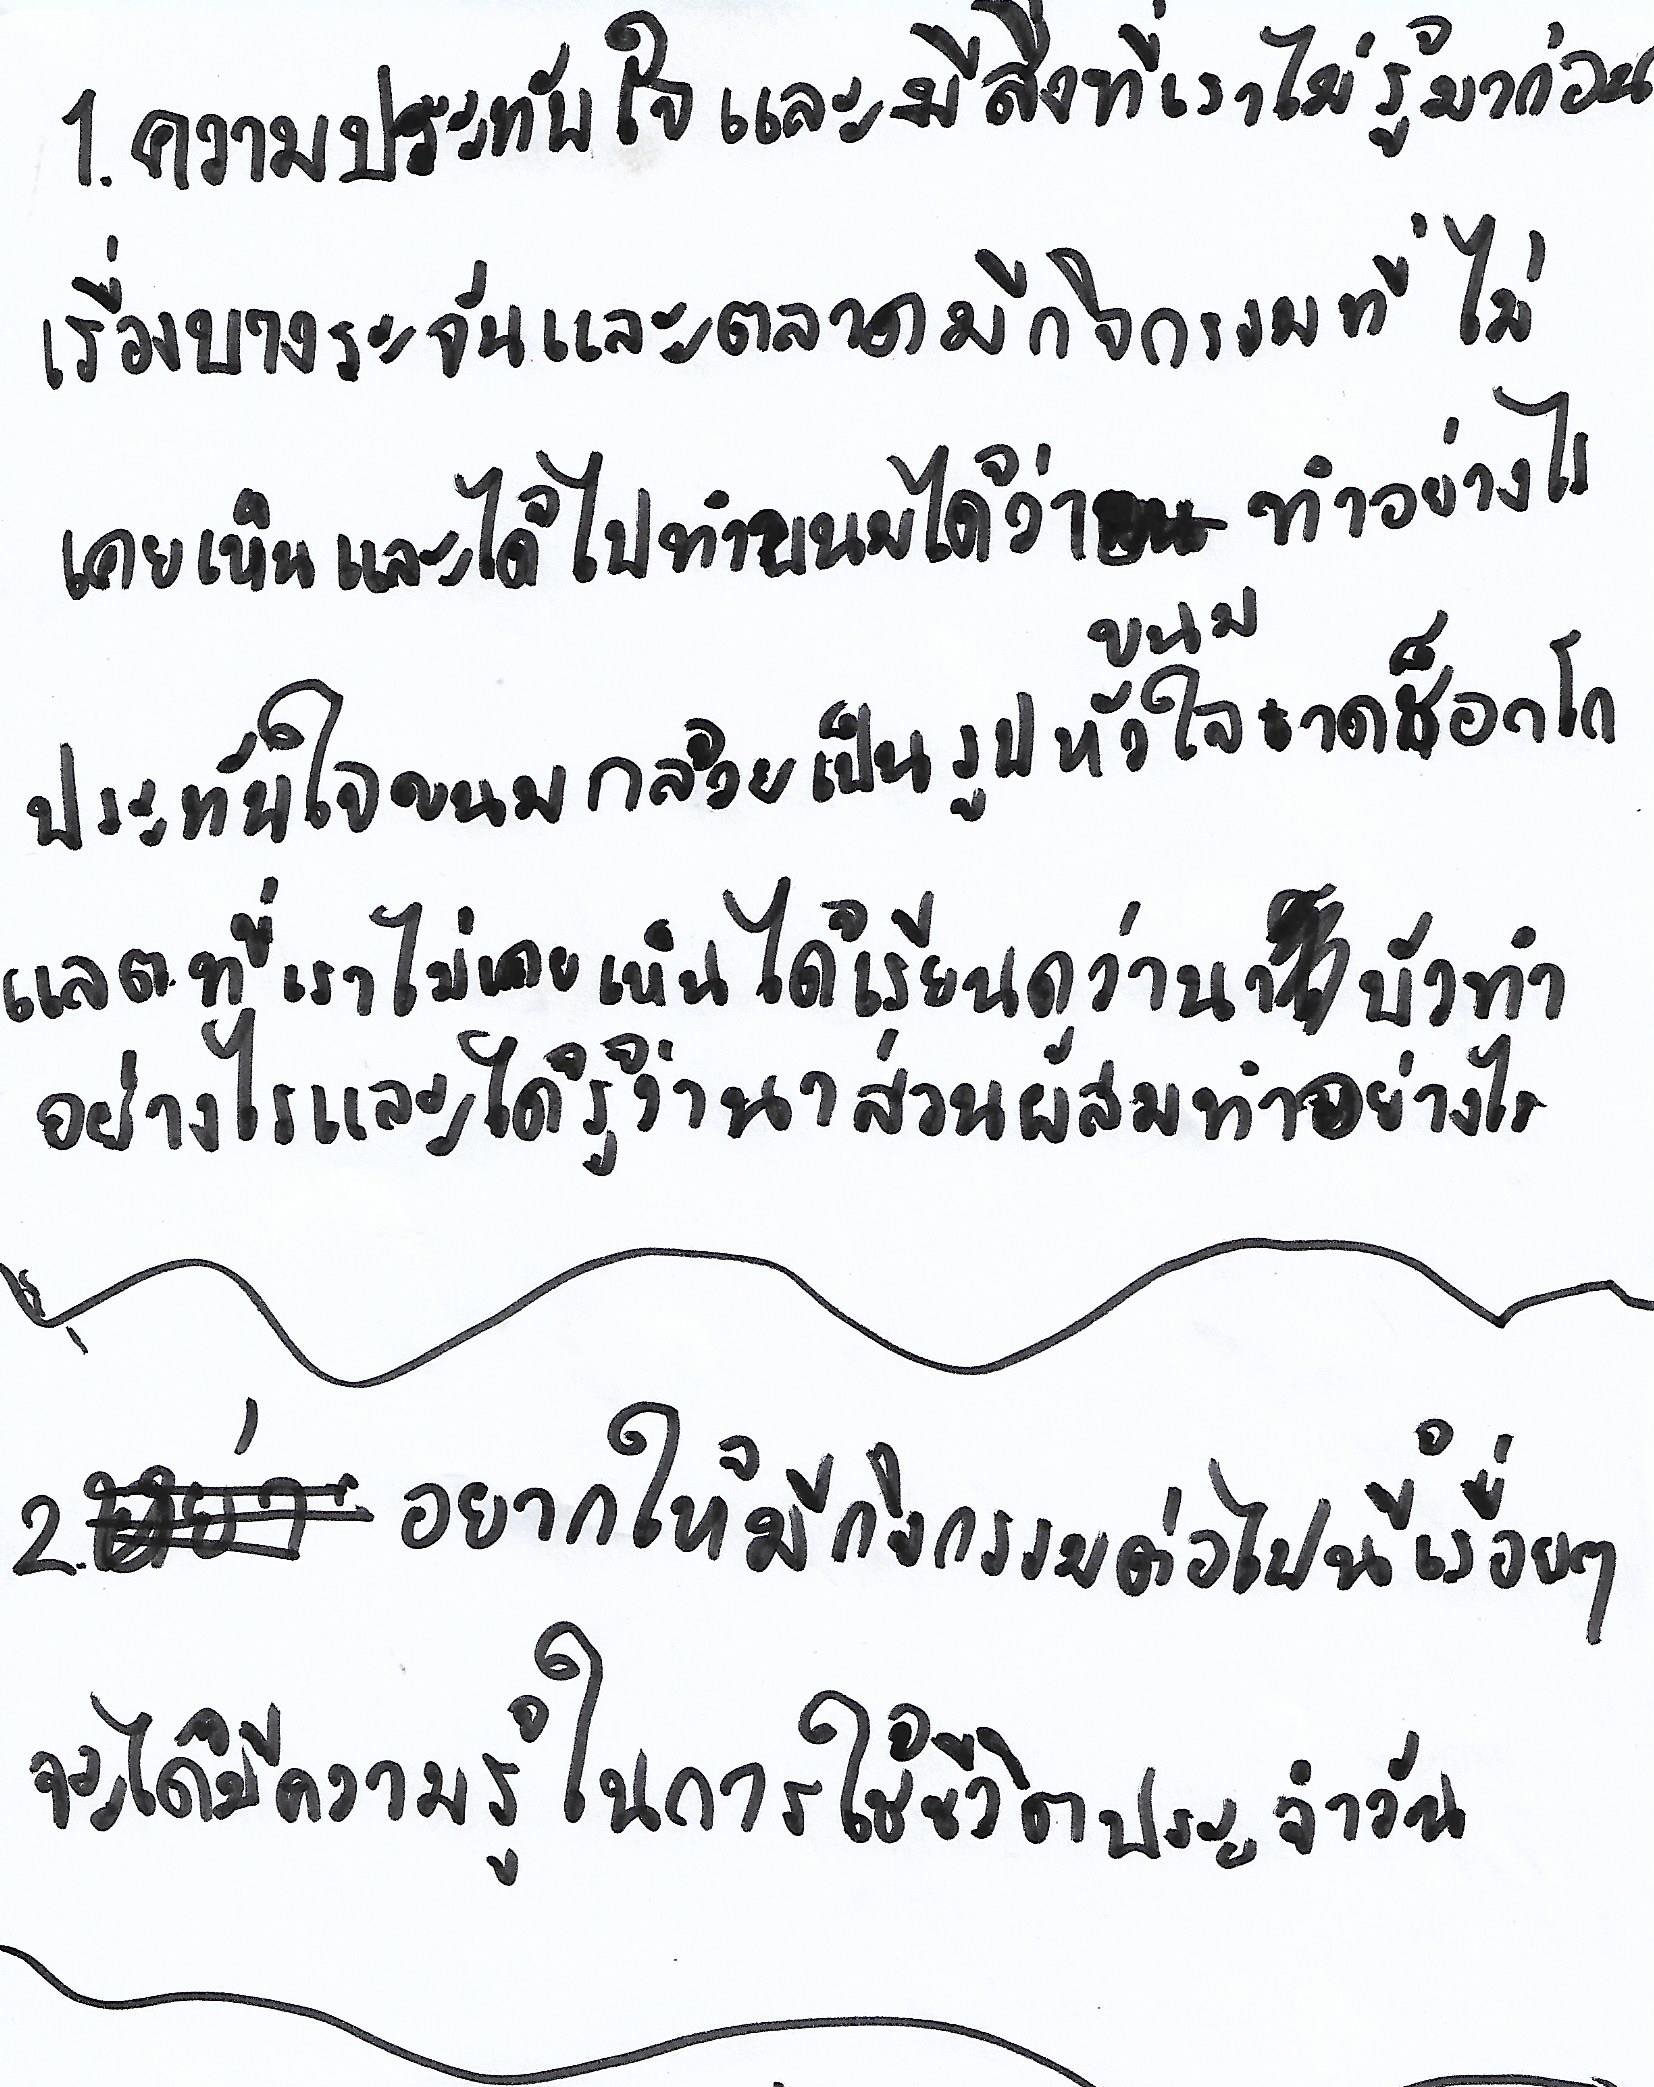 1. ความประทับใจ และมีสิ่งที่เราไม่รู้มาก่อน
เรื่องบางระจันและตลาดมีกิจกรรมที่ไม่
เคยเห็นและได้ไปทำขนมได้ว่า ทำอย่างไร
ขนม
ประทับใจขนมกล้วยเป็นรูปหัวใจราดช็อกโก
แลตที่เราไม่เคยเห็นได้เรียนดูว่านา บัวทำ
อย่างไรและได้รู้ว่านาส่วนผสมทำอย่างไร
2. อยากให้มีกิจกรรมต่อไปนี้เรื่อยๆ
จะได้มีความรู้ในการใช้ชีวิตประจำวัน